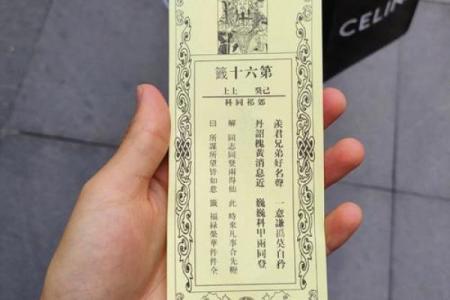 CELIN
第六十籤
己癸 上上
郊祁同科
羨君兄弟好名聲 一意謙撝莫自矜
丹詔槐黃消息近 巍巍科甲兩同登
解 同志同登兩得仙 此 時來凡事合先鞭
曰 所謀所望皆如意 籤 福祿榮華件件全